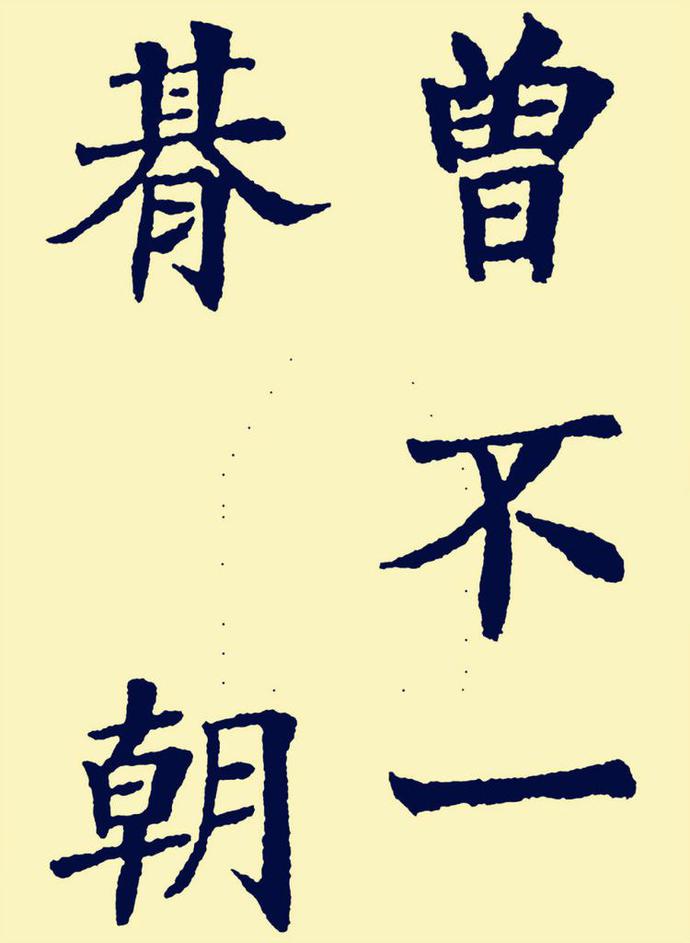 曾不一
朞朝